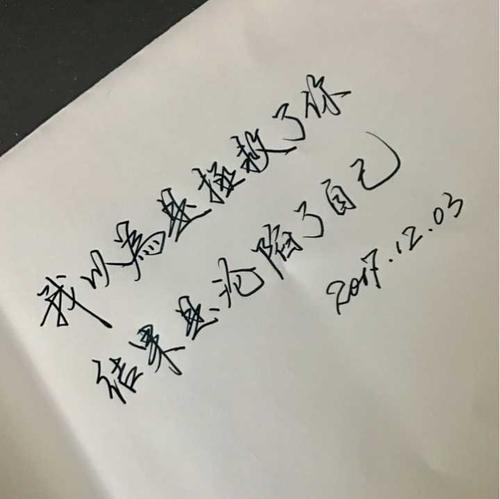 我以為是拯救了你
结果是沦陷了自己
2017.12.03